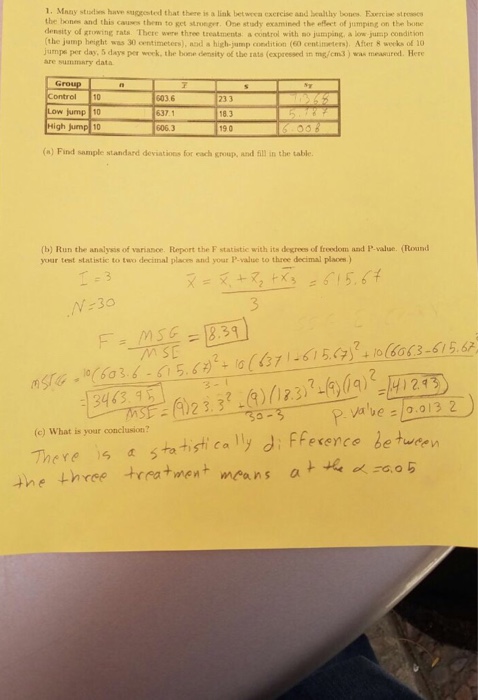 1. Many studies have suggested that there is a link between exercise and healthy bones. Exercise stresses
the bones and this causes them to get stronger. One study examined the effect of jumping on the bone
density of growing rats. There were three treatments: a control with no jumping, a low-jump condition
(the jump height was 30 centimeters), and a high-jump condition (60 centimeters). After 8 weeks of 10
jumps per day, 5 days per week, the bone density of the rats (expressed in mg/cm3 ) was measured. Here
are summary data.
Group n x̄ s
Control 10 603.6 23 3 7.368
Low jump 10 637 1 18.3 5.787
High jump 10 606.3 19 0 6.008
(a) Find sample standard deviations for each group, and fill in the table.
(b) Run the analysis of variance. Report the F statistic with its degrees of freedom and P-value. (Round
your test statistic to two decimal places and your P-value to three decimal places.)
I = 3 x̄ = x̄1 + x̄2 + x̄3 = 615.67
N = 30 3
F = MSG = 8.39
MSE
MSG = 10(603.6 - 615.67)² + 10(637.1-615.67)² + 10(606.3-615.67)²
3-1
= 3463.95
MSE = (9)23.3² + (9)(18.3)² + (9)(19)² = 412.93
30-3 p-value = 0.0132
(c) What is your conclusion?
There is a statistically difference between
the three treatment means at the α = 0.05